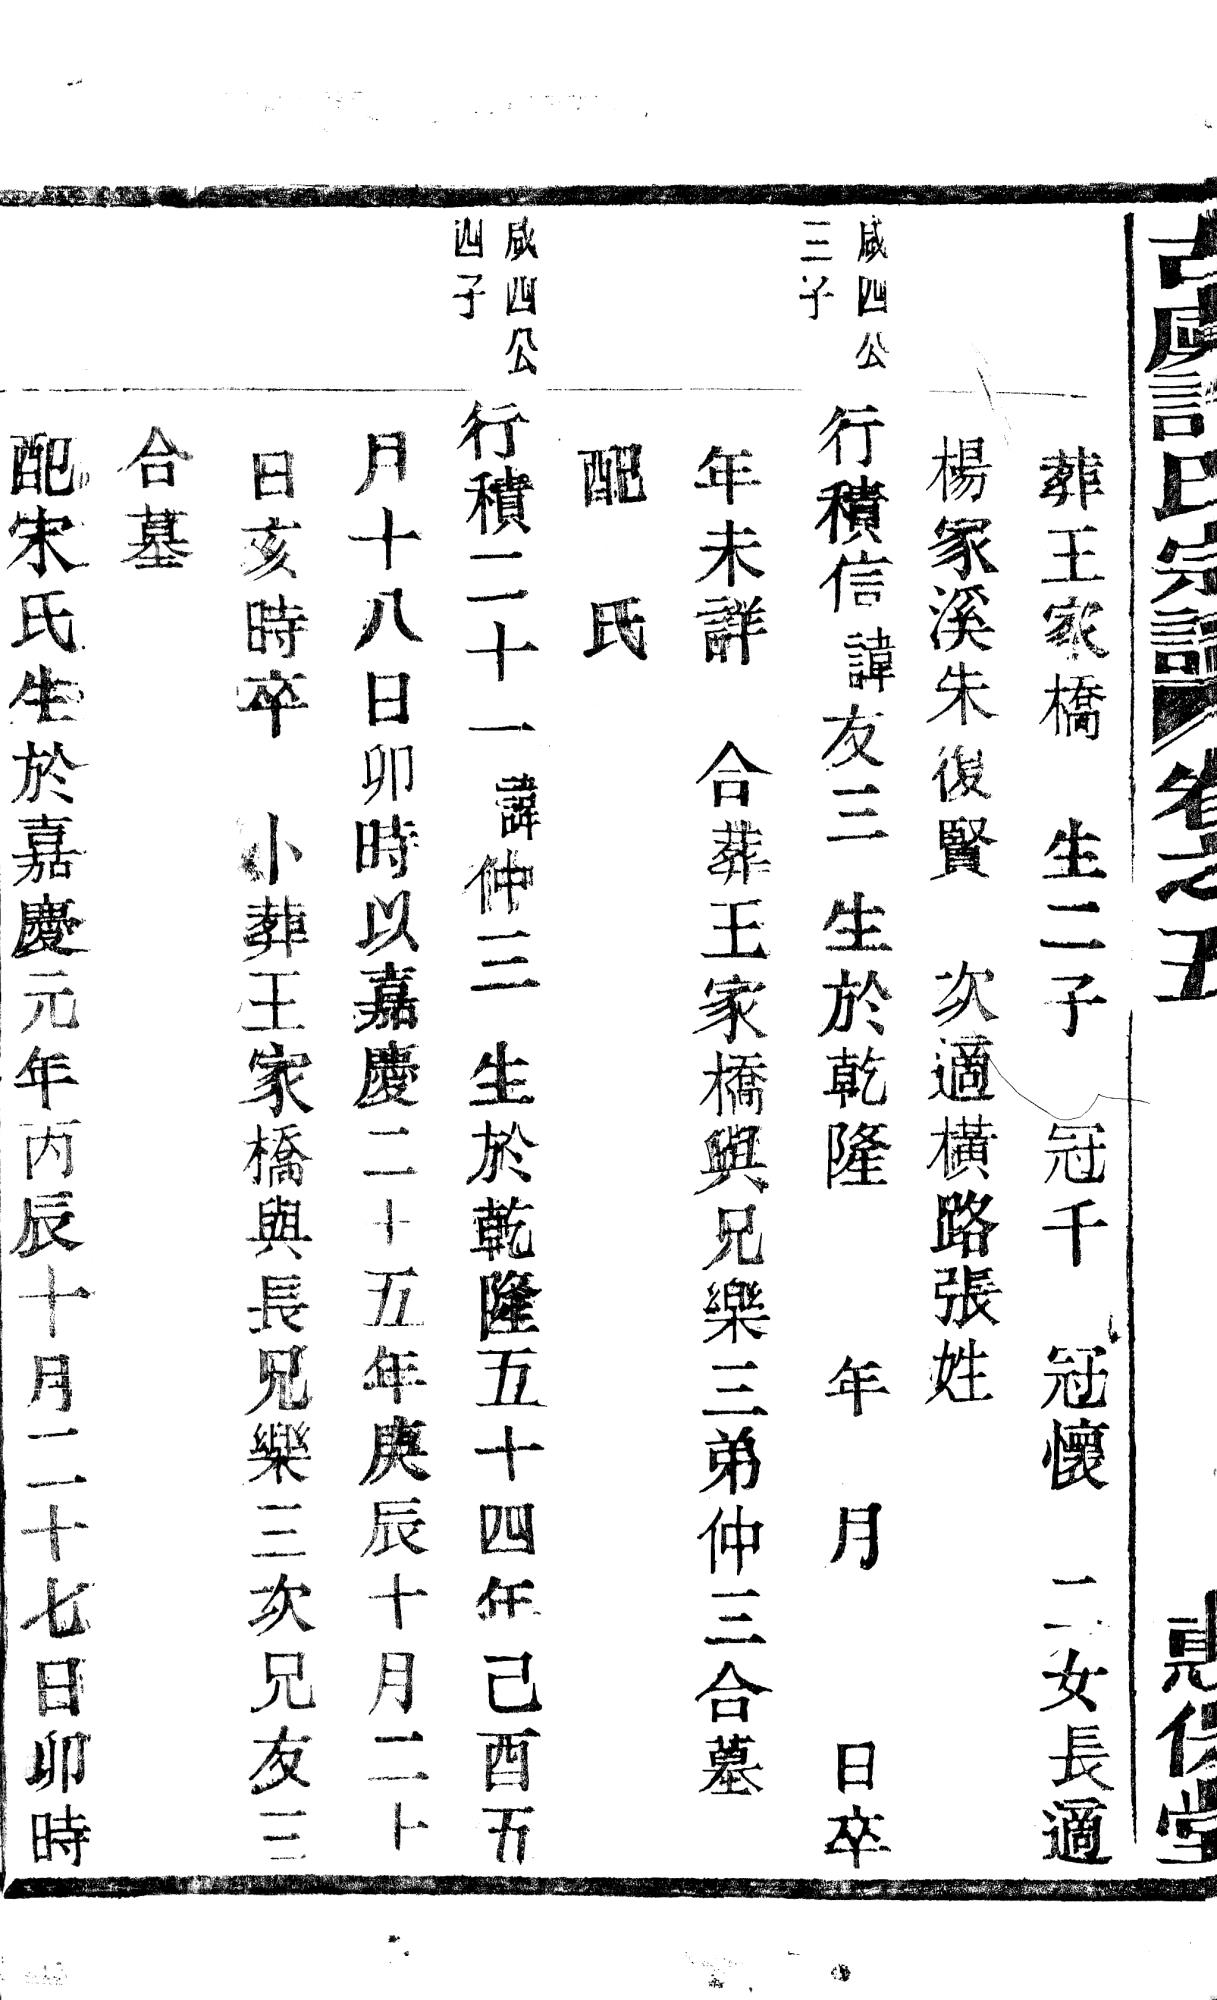 氏宗譜 卷之五
堂
葬王家橋 生二子 冠千 冠懷 二女長適
楊家溪朱復賢 次適橫路張姓
咸四公
三子
行積信諱友三 生於乾隆 年 月 日卒
年未詳 合葬王家橋與兄樂三弟仲三合墓
配 氏
咸四公
四子
行積二十一諱仲三 生於乾隆五十四年己酉五
月十八日卯時以嘉慶二十五年庚辰十月二十
日亥時卒 小葬王家橋與長兄樂三次兄友三
合墓
配宋氏生於嘉慶元年丙辰十月二十七日卯時